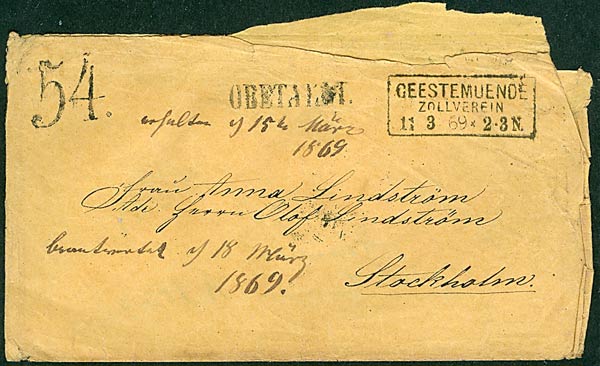 54.
OBETALDT.
GEESTEMUENDE
ZOLLVEREIN
11 3 69 * 2-3 N.
erhalten d 15t März
1869
Frau Anna Lindström
Adr. Herrn Olof Lindström
beantwortet d 18 März
1869.
Stockholm.